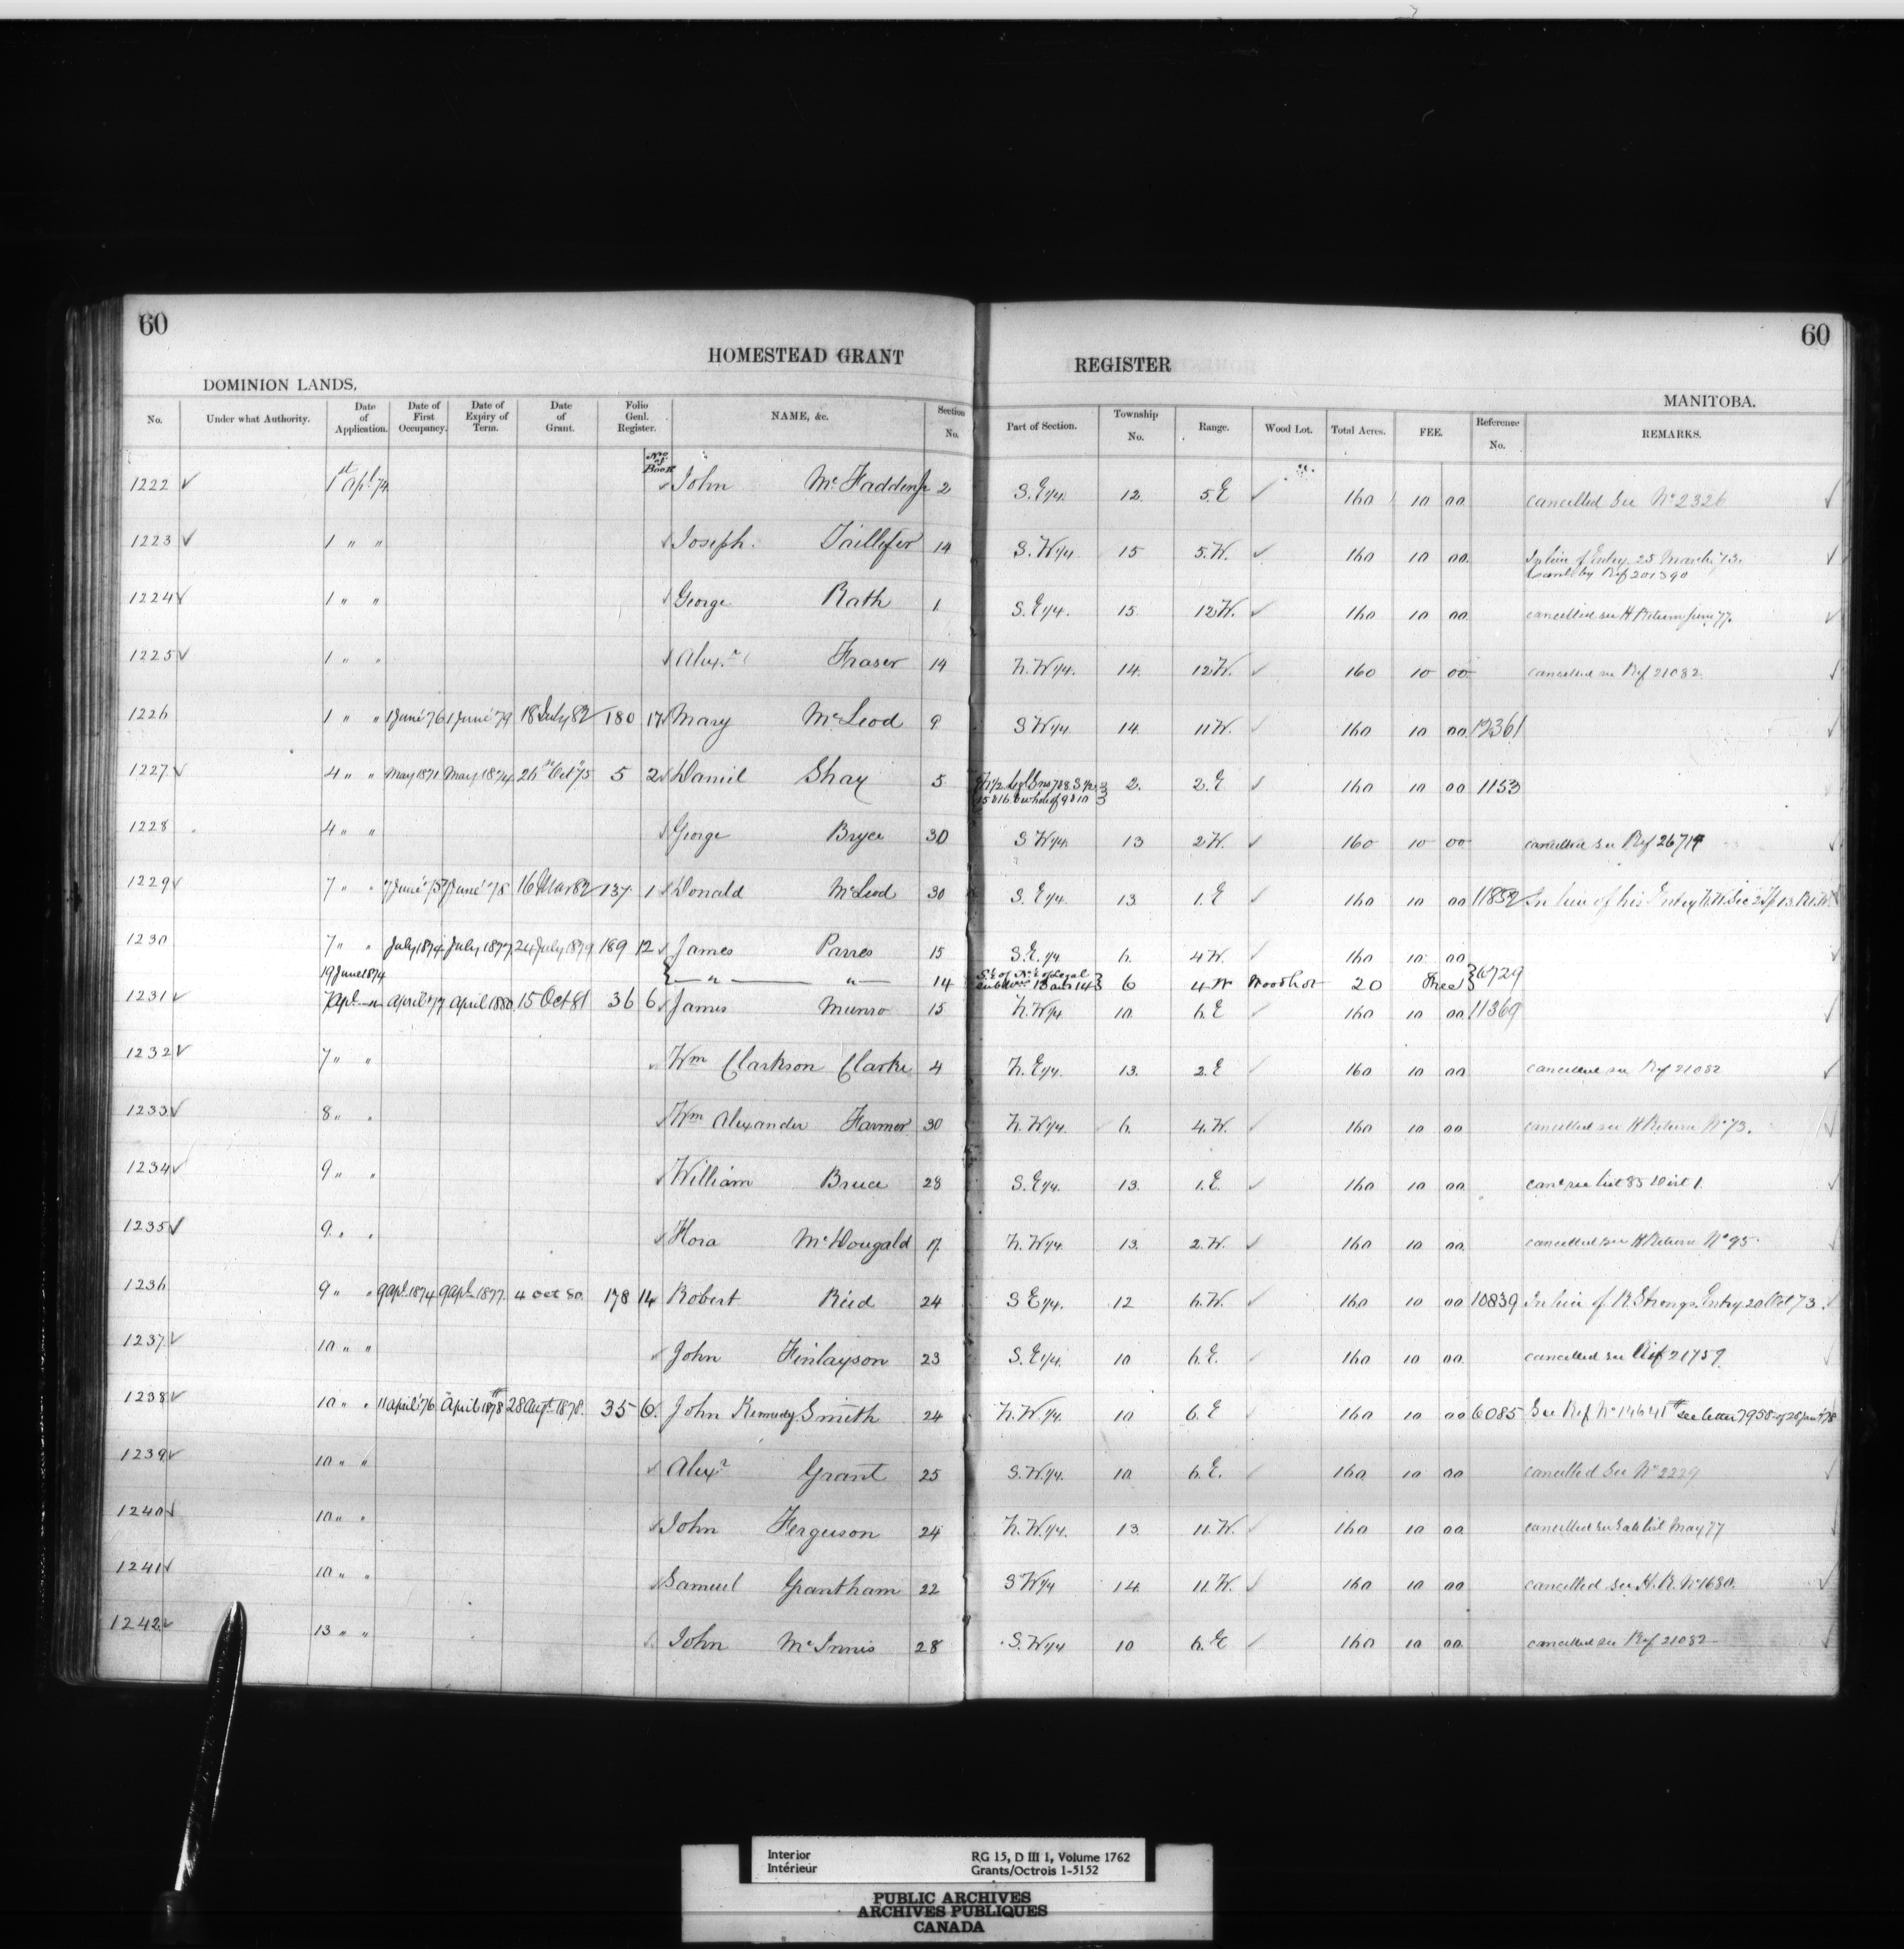 60
HOMESTEAD GRANT
REGISTER
60
DOMINION LANDS.
MANITOBA.
No. Under what Authority. Date of Application. Date of First Occupancy. Date of Expiry of Term. Date of Grant. Folio Genl. Register. NAME, &c. Section No. Part of Section. Township No. Range. Wood Lot. Total Acres. FEE. Reference No. REMARKS.
No. of Book
1222 ✓ 1st Apl. 74 John McFadden Jr 2 S.E 1/4 12. 5.E ✓ 160 10 00 cancelled See No 2326
1223 ✓ 1 " " Joseph. Taillefer 14 S.W 1/4 15 5.W. ✓ 160 10 00. In lieu of Entry 25 March, 73.
Ref 201390
1224 ✓ 1 " " George Rath 1 S.E 1/4. 15 12W. ✓ 160 10 00 cancelled see H Return June 77.
1225 ✓ 1 " " Alexr Fraser 14 N.W 1/4. 14. 12W. ✓ 160 10 00 cancelled see Ref 21082
1226 1 " " 1 June 76 1 June 79 18 July 82 180 17 Mary McLeod 9 S W 1/4 14 11W. 160 10 00. 12361
1227. ✓ 4 " " May 1871. May 1874. 26th Oct 75 5 2 Daniel Shay 5 2. 2.E ✓ 160 10 00 1153
15 & 16. & whole of 9 & 10
1228 4 " " George Bryce 30 S W 1/4. 13 2W. ✓ 160 10 00 cancelled see Ref 26714
1229 ✓ 7 " " 7 June 75 7 June 78 16 Mar 82 137 1 Donald McLeod 30 S. E 1/4. 13 1.E ✓ 160 10 00 11852 In lieu of his Entry
1230 7 " " July 1874. July 1877. 24 July 1879 189 12 James Parres 15 S.E. 1/4 6. 4W. ✓ 160 10 00
19 June 1874 " " 14 S.E of N.E of Legal 6 4 W Woodlot 20 Free 6729
subdivns 13 and 14
1231 ✓ 7 Apl " April 77 April 1880 15 Oct 81 36 6 James Munro 15 N.W 1/4. 10. 6.E ✓ 160 10 00 11369
1232 ✓ 7 " " Wm Clarkson Clarke 4 N.E 1/4. 13. 2.E ✓ 160 10 00 cancelled see Ref 21082
1233 ✓ 8 " " Wm Alexander Farmer 30 N.W 1/4. 6. 4.W. ✓ 160 10 00 cancelled see H Return No 73.
1234 ✓ 9 " " William Bruce 28 S.E 1/4. 13. 1.E. ✓ 160 10 00 canc see list 85 Dist 1.
1235 ✓ 9 " " Flora McDougald 17. N.W 1/4. 13. 2.W. ✓ 160 10 00. cancelled see H Return No 95.
1236 9 " " 9 Apl. 1874 9 Apl. 1877. 4 Oct 80. 178 14 Robert Reid 24 S E 1/4. 12 6.W. ✓ 160 10 00 10839 In lieu of R. Strongs Entry 20 Oct 73.
1237. ✓ 10 " " John Finlayson 23 S.E 1/4. 10 6.E. ✓ 160 10 00. cancelled see Ref 21759
1238 ✓ 10 " " 11 April 76 April 1878 28 Augt 1878. 35 6. John Kennedy Smith 24 N.W. 1/4. 10 6.E ✓ 160 10 00 6085 See Ref No 14641 see letter 7958 of 28 Jany 78
1239 ✓ 10 " " Alexr Grant 25 S.W. 1/4. 10 6.E. ✓ 160 10 00 cancelled See No 2229
1240 ✓ 10 " " John Ferguson 24 N.W. 1/4. 13. 11.W. ✓ 160 10 00 cancelled see Sale list May 77
1241 ✓ 10 " " Samuel Grantham 22 S W 1/4 14. 11.W. ✓ 160 10 00 cancelled see H.R. No 1680.
1242. ✓ 13 " " John McInnis 28 S.W 1/4 10 6.E ✓ 160 10 00. cancelled see Ref 21082
Interior
Intérieur
RG 15, D III 1, Volume 1762
Grants/Octrois 1-5152
PUBLIC ARCHIVES
ARCHIVES PUBLIQUES
CANADA